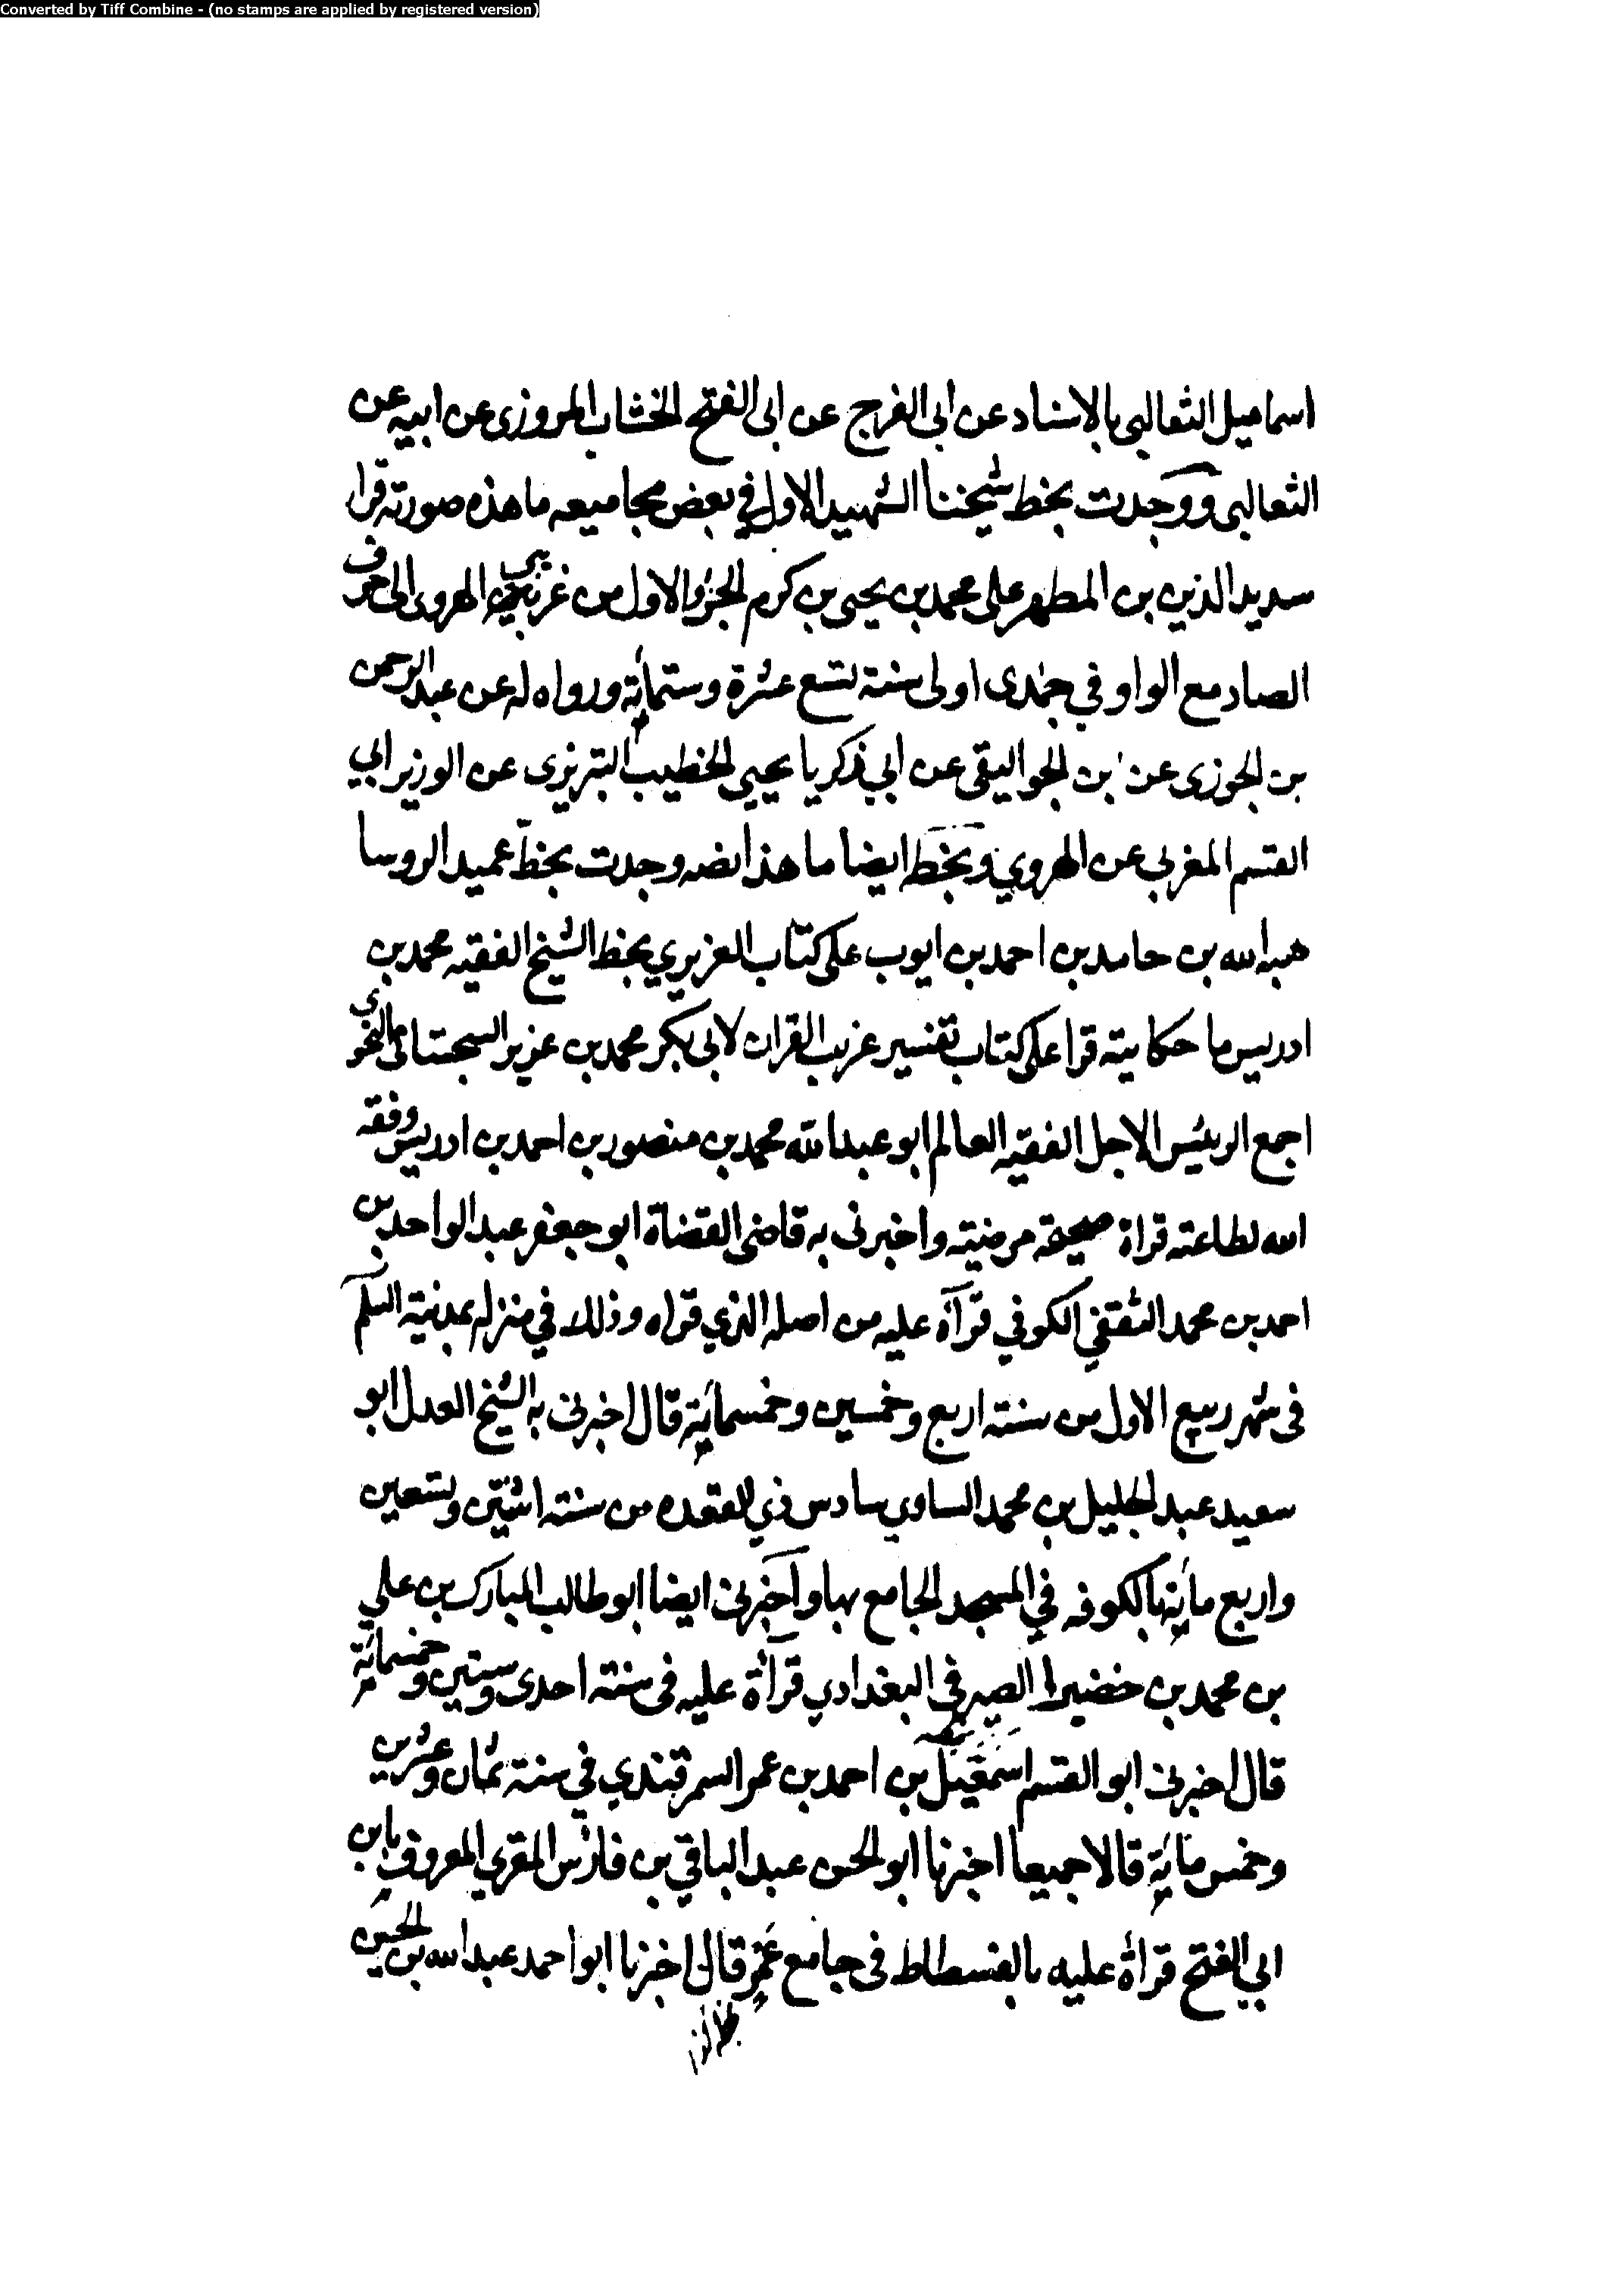 Converted by Tiff Combine - (no stamps are applied by registered version)
اسماعيل الثعالبى بالاسناد عن ابى الفرج عن ابى الفتح الخشاب المروزى عن ابيه عن
الثعالبى ووجدت بخط شيخنا الشهيد الاول في بعض مجاميعه ما هذه صورته قرا
سديد الدين بن المطهر على محمد بن يحيى بن كرم الجزؤ الاول من غريبى الهروى الى حرف
الصاد مع الواو في جمدى اولى سنة تسع عشرة وستمائة ورواه له عن عبد الرحمن
بن الجوزى عن بن الجواليقى عن ابي ذكريا يحيى الخطيب التبريزى عن الوزير ابي
القسم المغربي عن الهروي وبخط ايضا ما هذا نصه وجدت بخط عميد الروسا
هبه الله بن حامد بن احمد بن ايوب على كتاب العزيزي بخط الشيخ الفقيه محمد بن
ادريس ما حكايته قرا على كتاب تفسير غريب القران لابى بكر محمد بن عزيز السجستانى النحوي
اجمع الرئيس الاجل الفقيه العالم ابو عبد الله محمد بن منصور بن احمد بن ادريس وفقه
الله لطاعته قراة صحيحة مرضيته واخبرنى به قاضى القضاة ابو جعفر عبد الواحد بن
احمد بن محمد الثقفي الكوفي قرآة عليه من اصله الذي قراه وذلك في منزله بمدنية السلم
فى شهر ربيع الاول من سنته اربع وخمسين وخمسمائة قال اخبرنى به الشيخ العدل ابو
سعيد عبد الجليل بن محمد الساوي سادس ذي القعده من سنته اثنتين وتسعين
واربع مائة بالكوفه في المسجد الجامع بها واخبرنى ايضا ابو طالب المبارك بن علي
بن محمد بن خضير الصيرفي البغدادي قرآة عليه فى سنته احدى وستين وخمسمائة
قال اخبرنى ابو القسم اسمعيل بن احمد بن عمر السمرقندي في سنة ثمان وعشرين
وخمس مائة قالا جميعا اخبرنا ابو الحسن عبد الباقي بن فارس المقري المعروف بابن
ابي الفتح قراة عليه بالفسطاط فى جامع عمرو قال اخبرنا ابو احمد عبد الله بن الحسين